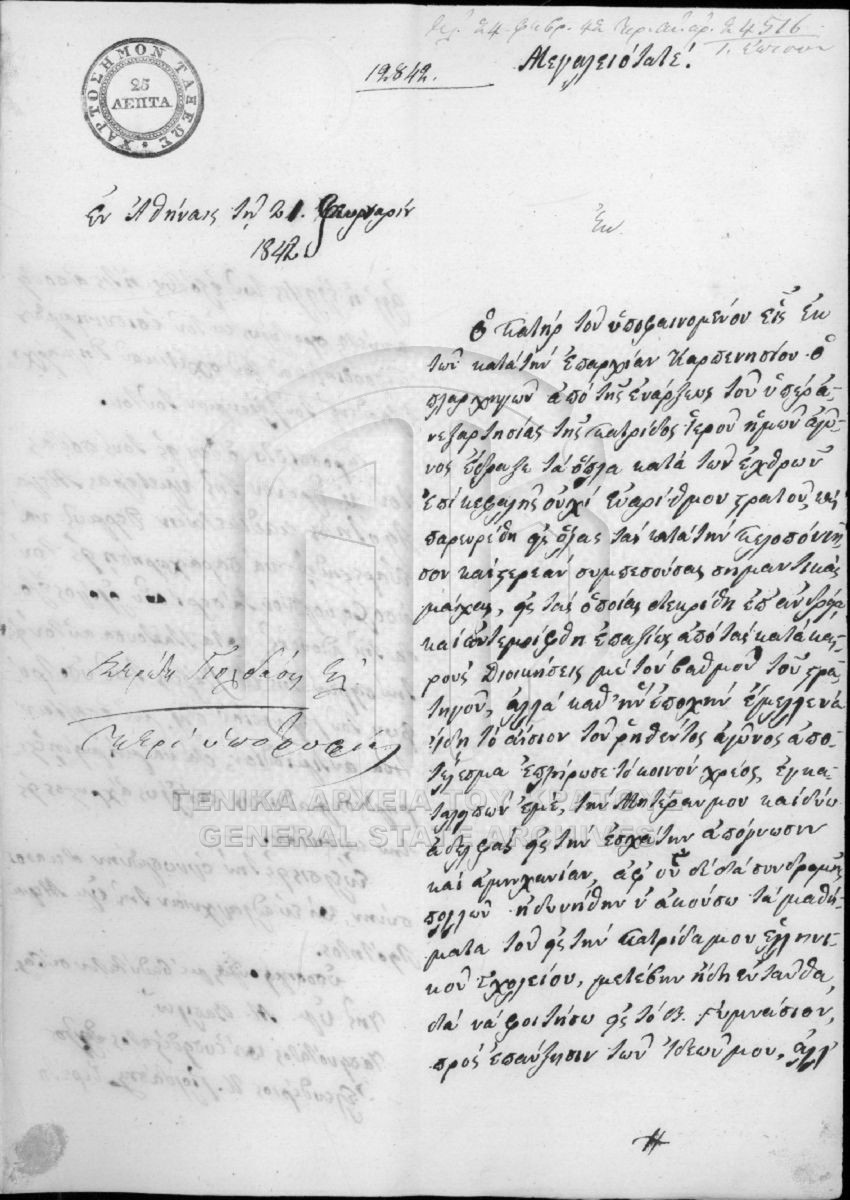 ΧΑΡΤΟΣΗΜΟΝ ΤΑΞΕΩΣ
25
ΛΕΠΤΑ
12842.
24516
Μεγαλειότατε!
Ἐν Ἀθήναις τῇ 21. Φευρουαρίου
1842.
Ὁ πατὴρ τοῦ ὑποφαινομένου εἷς ἐκ
τῶν κατὰ τὴν ἐπαρχίαν Καρπενησίου ὁ
πλαρχηγῶν ἀπὸ τῆς ἐνάρξεως τοῦ ὑπὲρ ἀ-
νεξαρτησίας τῆς πατρίδος ἱεροῦ ἡμῶν ἀγῶ-
νος ἔδραξε τὰ ὅπλα κατὰ τῶν ἐχθρῶν
ἐπὶ κεφαλῆς οὐχὶ εὐαρίθμου στρατοῦ,
παρευρέθη εἰς ὅλας τὰς κατὰ τὴν Πελοπόννη
σον καὶ στερεὰν συμπεσούσας σημαντικὰς
μάχας, εἰς τὰς ὁποίας διεκρίθη
καὶ ἀντεμείφθη ἐπαξίως ἀπὸ τὰς κατὰ και
ροὺς Διοικήσεις μὲ τὸν βαθμὸν τοῦ στρα
τηγοῦ, ἀλλὰ καθ' ἣν ἐποχὴν ἔμελλε νὰ
ἴδῃ τὸ αἴσιον τοῦ ῥηθέντος ἀγῶνος ἀπο-
τέλεσμα ἐπλήρωσε τὸ κοινὸν χρέος, ἐγκα
ταλιπὼν ἐμὲ, τὴν Μητέραν μου καὶ δύω
ἀδελφὰς εἰς τὴν ἐσχάτην ἀπόγνωσιν
καὶ ἀμηχανίαν, ἀφ' οὗ δὲ διὰ συνδρομῆς
πολλῶν ἠδυνήθην ν' ἀκούσω τὰ μαθή-
ματα τοῦ εἰς τὴν πατρίδα μου ἑλληνι
κοῦ σχολείου, μετέβην ἤδη ἐνταῦθα,
διὰ νὰ φοιτήσω εἰς τὸ Β. Γυμνάσιον,
πρὸς ἐπαύξησιν τῶν ἰδεῶν μου, ἀλλ'
περὶ ὑποτροφίας
ΓΕΝΙΚΑ ΑΡΧΕΙΑ ΤΟΥ ΚΡΑΤΟΥΣ
GENERAL STATE ARCHIVES